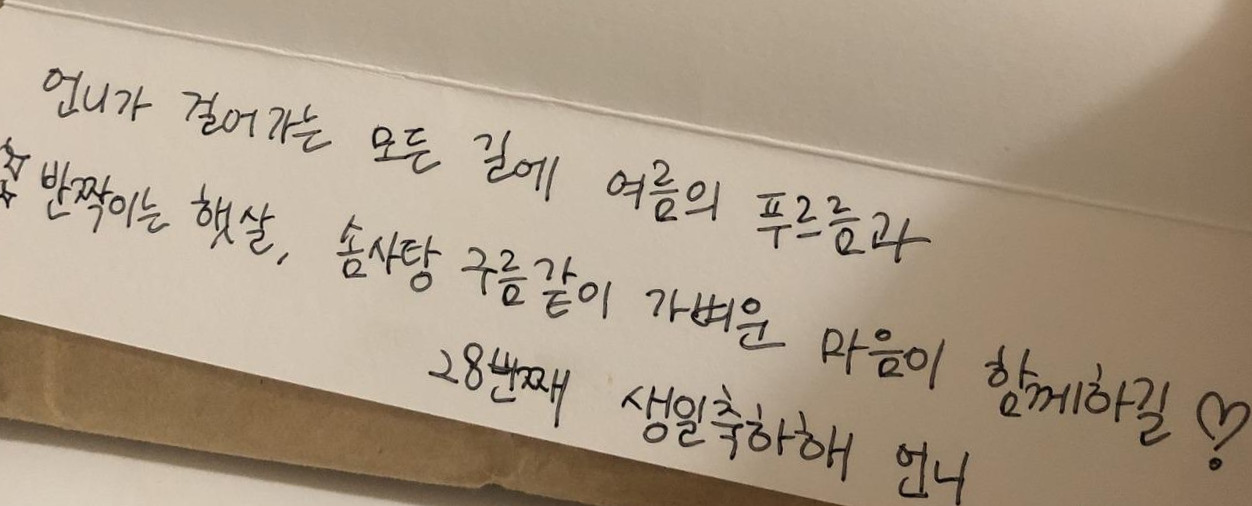 언니가 걸어가는 모든 길에 여름의 푸르름과
반짝이는 햇살, 솜사탕 구름같이 가벼운 마음이 함께하길♡
28번째 생일축하해 언니